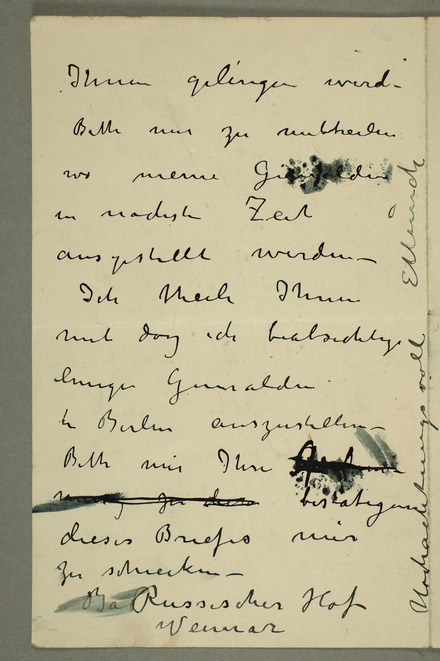 Ihnen gelingen wird-
Bitte mir zu mittheilen
wo meine Gemälden
in nächste Zeit
ausgestellt werden-
Ich theile Ihnen
mit das ich beabsichtige
einige Gemälden
in Berlin auszustellen-
Bitte mir Ihre
zu diese bestätigung
dieses Briefes mir
zu schicken-
Russischer Hof
Weimar
Hochachtungsvoll EMunch